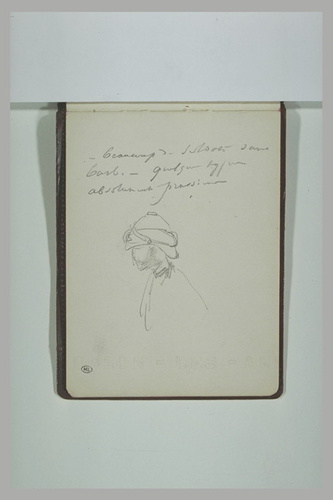 – beaucoup de soldats sans
barbe – quelques types
absolument prussiens